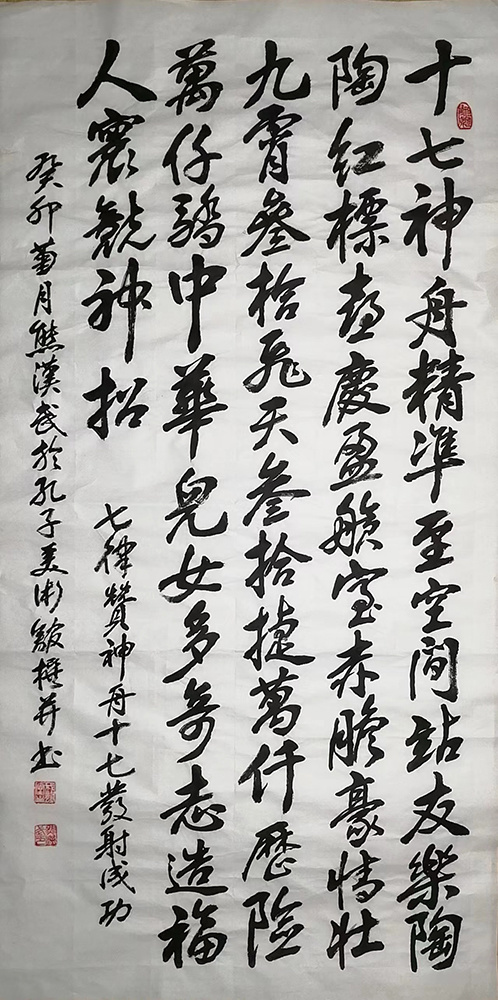 十七神舟精準至空間站友樂陶
陶紅標喜慶盈艙室赤膽豪情壯
九霄叄拾飛天叄拾捷萬仟歷險
萬仔驕中華兒女多奇志造福
人寰競神招
七律贊神舟十七發射成功
癸卯菊月熊漢武於孔子美術館撰并書